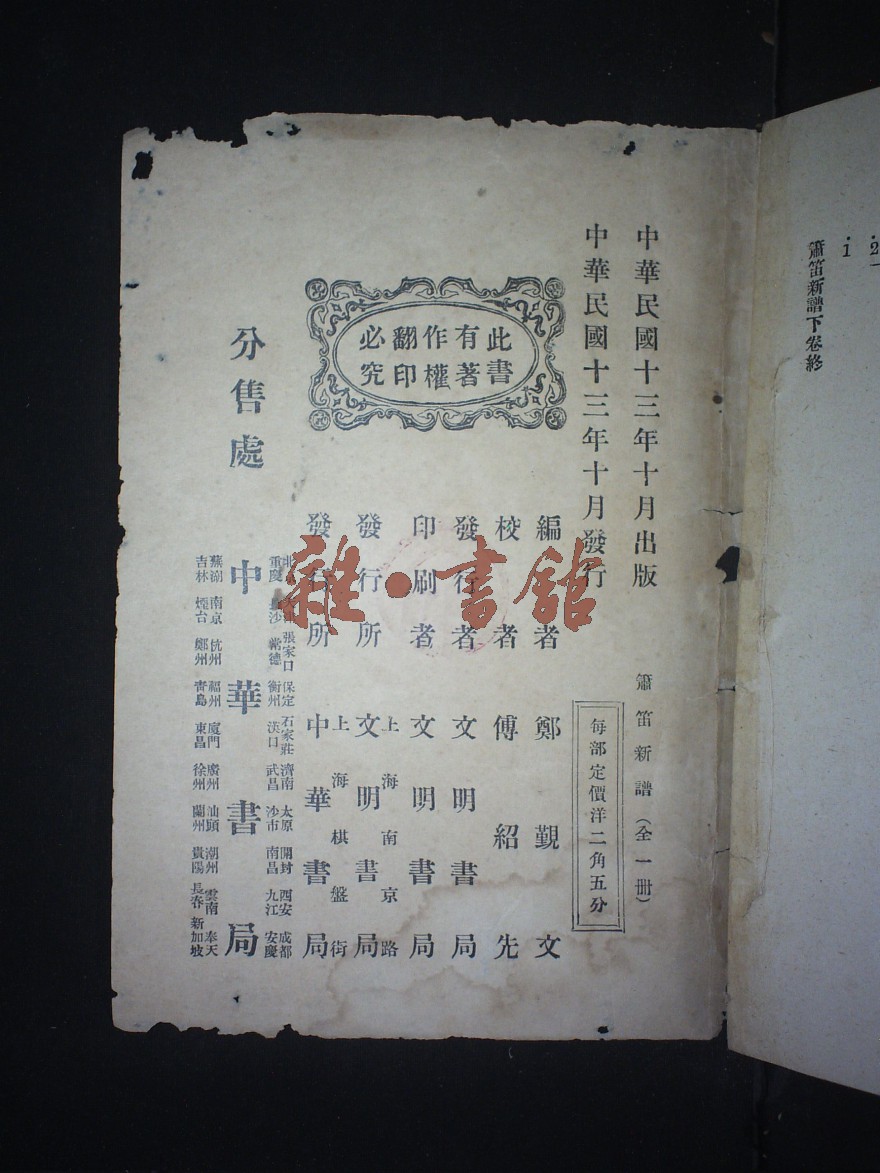 2
1
簫笛新譜下卷終
中華民國十三年十月出版
中華民國十三年十月發行
簫笛新譜(全一冊)
每部定價洋二角五分
此書
有著
作權
翻印
必究
編者 鄭覲文
校者 傅紹先
發行者 文明書局
印刷者 文明書局
上海南京路
發行所 文明書局
上海棋盤街
發行所 中華書局
張家口 保定 石家莊 濟南 太原 開封 西安 成都
重慶 長沙 常德 衡州 漢口 武昌 沙市 南昌 九江 安慶
分售處 中華書局
蕪湖 南京 杭州 福州 廈門 廣州 汕頭 潮州 雲南 奉天
吉林 煙台 鄭州 青島 東昌 徐州 蘭州 貴陽 長春 新加坡
雜·書館